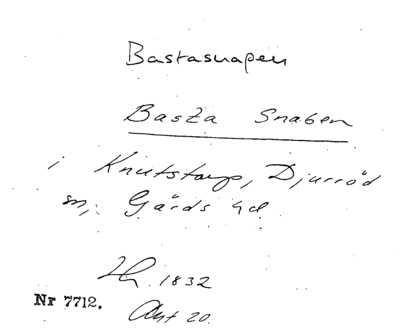 Bastasnapen
Basta Snaben
i Knutstorp, Djurröd
sn, Gärds hd
1832
Nr 7712. Akt 20